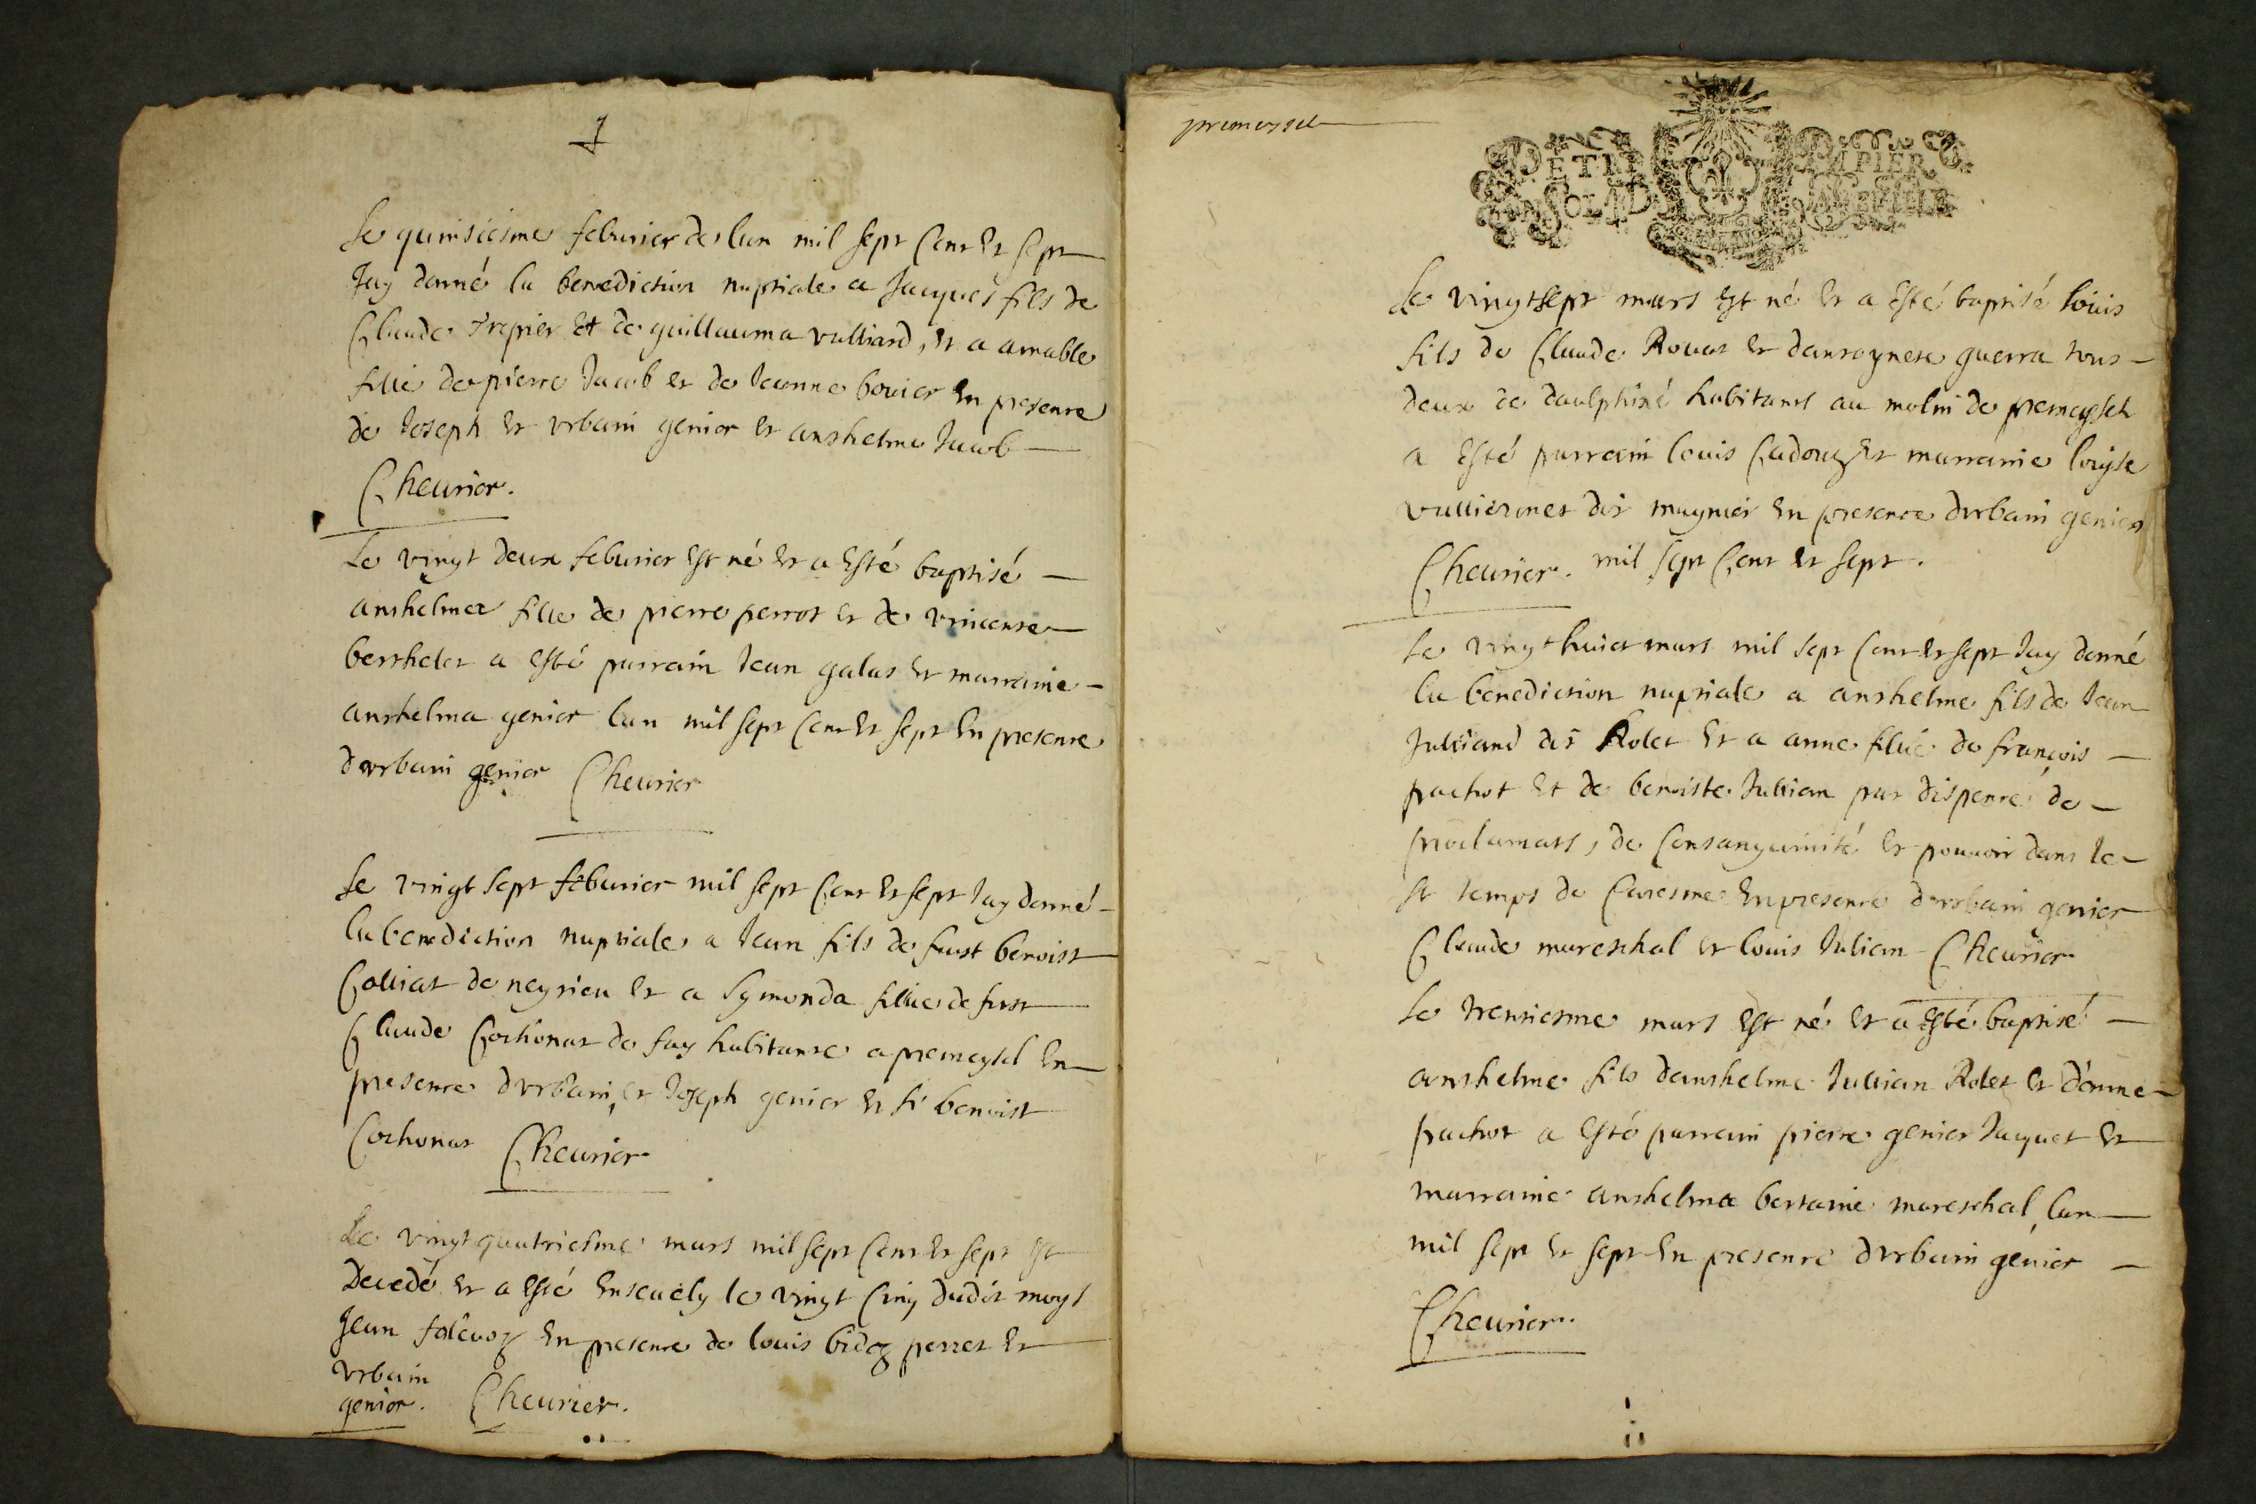 1
Le quinsiesme feburier de lan mil sept Cent et sept
Jay donné la benediction nuptiale a Jacques fils de
Claude Trepier et de guillauma vulliard, et a amable
fille de pierre Jacob et de Jeanne bouier en presence
de Joseph et vrbain genier et anthelme Jacob
Cheurier.
Le vingt deux feburier est né et a esté baptisé
anthelmea fille de pierre perrot et de vincense
berthelet a esté parrain Jean galas et marraine
anthelma genier lan mil sept Cent et sept en presence
durbain genier Cheurier
Le vingt sept feburier mil sept Cent et sept Jay donné
la benediction nuptiale a Jean fils de fust benoist
Colliat de neyrieu et a Symonda fillie de fust
Claude Cochonat de fay habitante a premeysel en
presence durbain, et Joseph genier et fr benoist
Cochonat Cheurier
Le vingt quatriesme mars mil sept Cent et sept est
Decedé et a esté ensevely le vingt Cinq dudit moys
Jean falcuoz en presence de louis bidoz perret et
vrbain
genier. Cheurier.
premeysel
PETIT PAPIER
Le vingt sept mars est né et a esté baptisé louis
fils de Claude Rouat et dantoynete guerra tous
deux de daulphiné habitants au molin de premeysel
a esté parrain louis Cadouz et marraine louyse
vulliermet dit magnier en presence durbain genier
Cheurier. mil sept Cent et sept.
Le vingt huict mars mil sept Cent et sept Jay donné
la benediction nuptiale a anthelme fils de Jean
Julliand dit Rolet et a anne fillie de françois
pachot et de benoiste Jullian par dispence de
proclamats, de Consanguinité et pouuoir dans le
st temps de Caresme en presence durbain genier
Claude mareschal et louis Julian Cheurier
Le trensiesme mars est né et a esté baptisé
anthelme fils danthelme Jullian Rolet et danne
pachot a esté parrain pierre genier Jaquet et
marraine anthelma bertaine mareschal, lan
mil sept et sept en presence durbain genier
Cheurier.